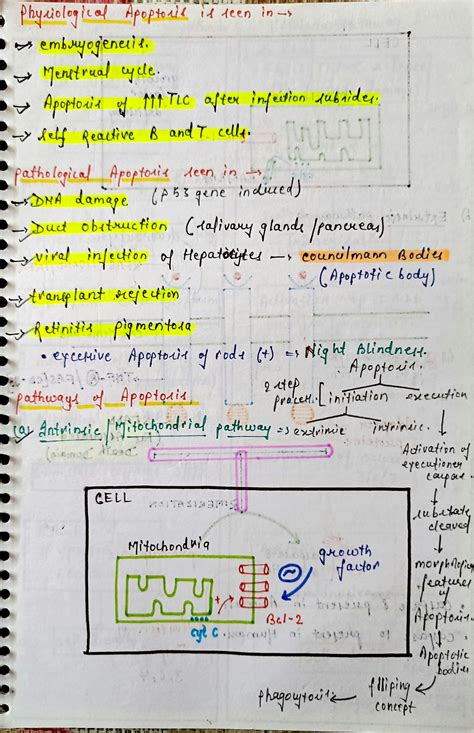 Physiological Apoptosis is seen in →
→ embryogenesis.
→ Menstrual cycle.
→ Apoptosis of ↑↑↑ TLC after infection subsides.
→ Self Reactive B and T cells.
pathological Apoptosis seen in →
→ DNA damage (P53 gene induced)
→ Duct obstruction (salivary glands/pancreas)
→ viral infection of Hepatocytes → councilmann Bodies
(Apoptotic body)
→ transplant rejection
→ Retinitis pigmentosa
• excessive Apoptosis of rods (+) ⇒ Night Blindness.
pathways of Apoptosis
(a) Intrinsic/Mitochondrial pathway ⇒
Apoptosis.
2 step
process.
initiation
execution
extrinsic
intrinsic.
Activation of
executioner
caspase
substrate
cleaved
morphological
features
of
Apoptosis.
Apoptotic
bodies
flliping
concept
phagocytosis
CELL
Mitochondria
growth
factor
+
Bcl-2
cyt C
CELL